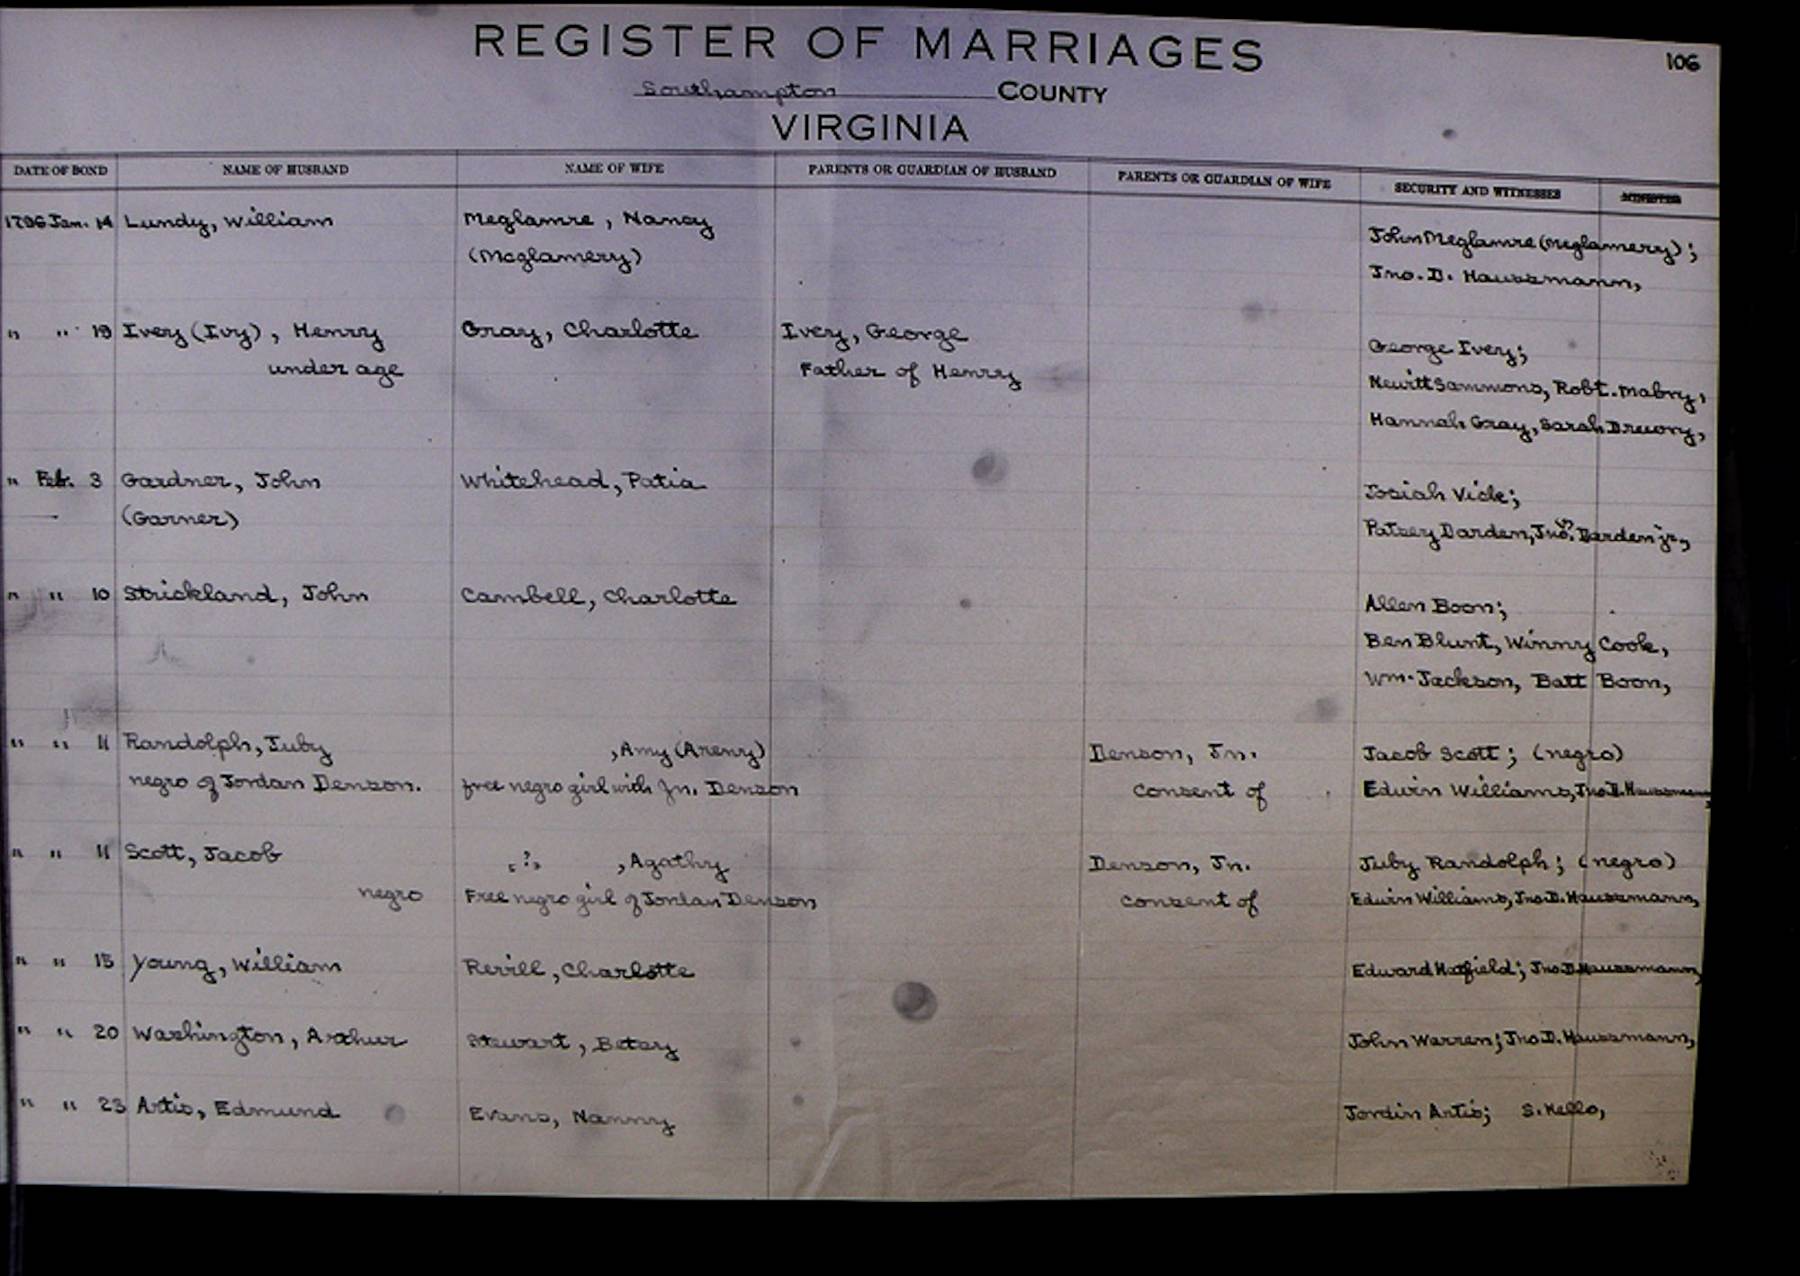 REGISTER OF MARRIAGES
106
Southampton COUNTY
VIRGINIA
DATE OF BOND NAME OF HUSBAND NAME OF WIFE PARENTS OR GUARDIAN OF HUSBAND PARENTS OR GUARDIAN OF WIFE SECURITY AND WITNESSES MINISTER
1796 Jan. 14 Lundy, William Meglamre, Nancy John Meglamre (Meglamery);
(Mcglamery) Jno. D. Haussmann,
" " 19 Ivery (Ivy), Henry Gray, Charlotte Ivey, George George Ivery;
under age Father of Henry Newitt Sammons, Robt. Mabry,
Hannah Gray, Sarah Drewry,
" Feb. 3 Gardner, John Whitehead, Patia Josiah Vick;
(Garner) Patsey Darden, Jno. Darden jr.,
" " 10 Strickland, John Cambell, Charlotte Allen Boon;
Ben Blunt, Winny Cook,
Wm. Jackson, Batt Boon,
" " 11 Randolph, Juby , Amy (Aremy) Denson, Jn. Jacob Scott; (negro)
negro of Jordan Denson. free negro girl with Jn. Denson consent of Edwin Williams, Jno. D. Haussmann,
" " 11 Scott, Jacob "?" , Agathy Denson, Jn. Juby Randolph; (negro)
negro Free negro girl of Jordan Denson consent of Edwin Williams, Jno. D. Haussmann,
" " 15 Young, William Revill, Charlotte Edward Hatfield; Jno. D. Haussmann,
" " 20 Washington, Arthur Stewart, Betsy John Warren; Jno D. Haussmann,
" " 23 Artis, Edmund Evans, Nanny Jordin Artis; S. Kello,